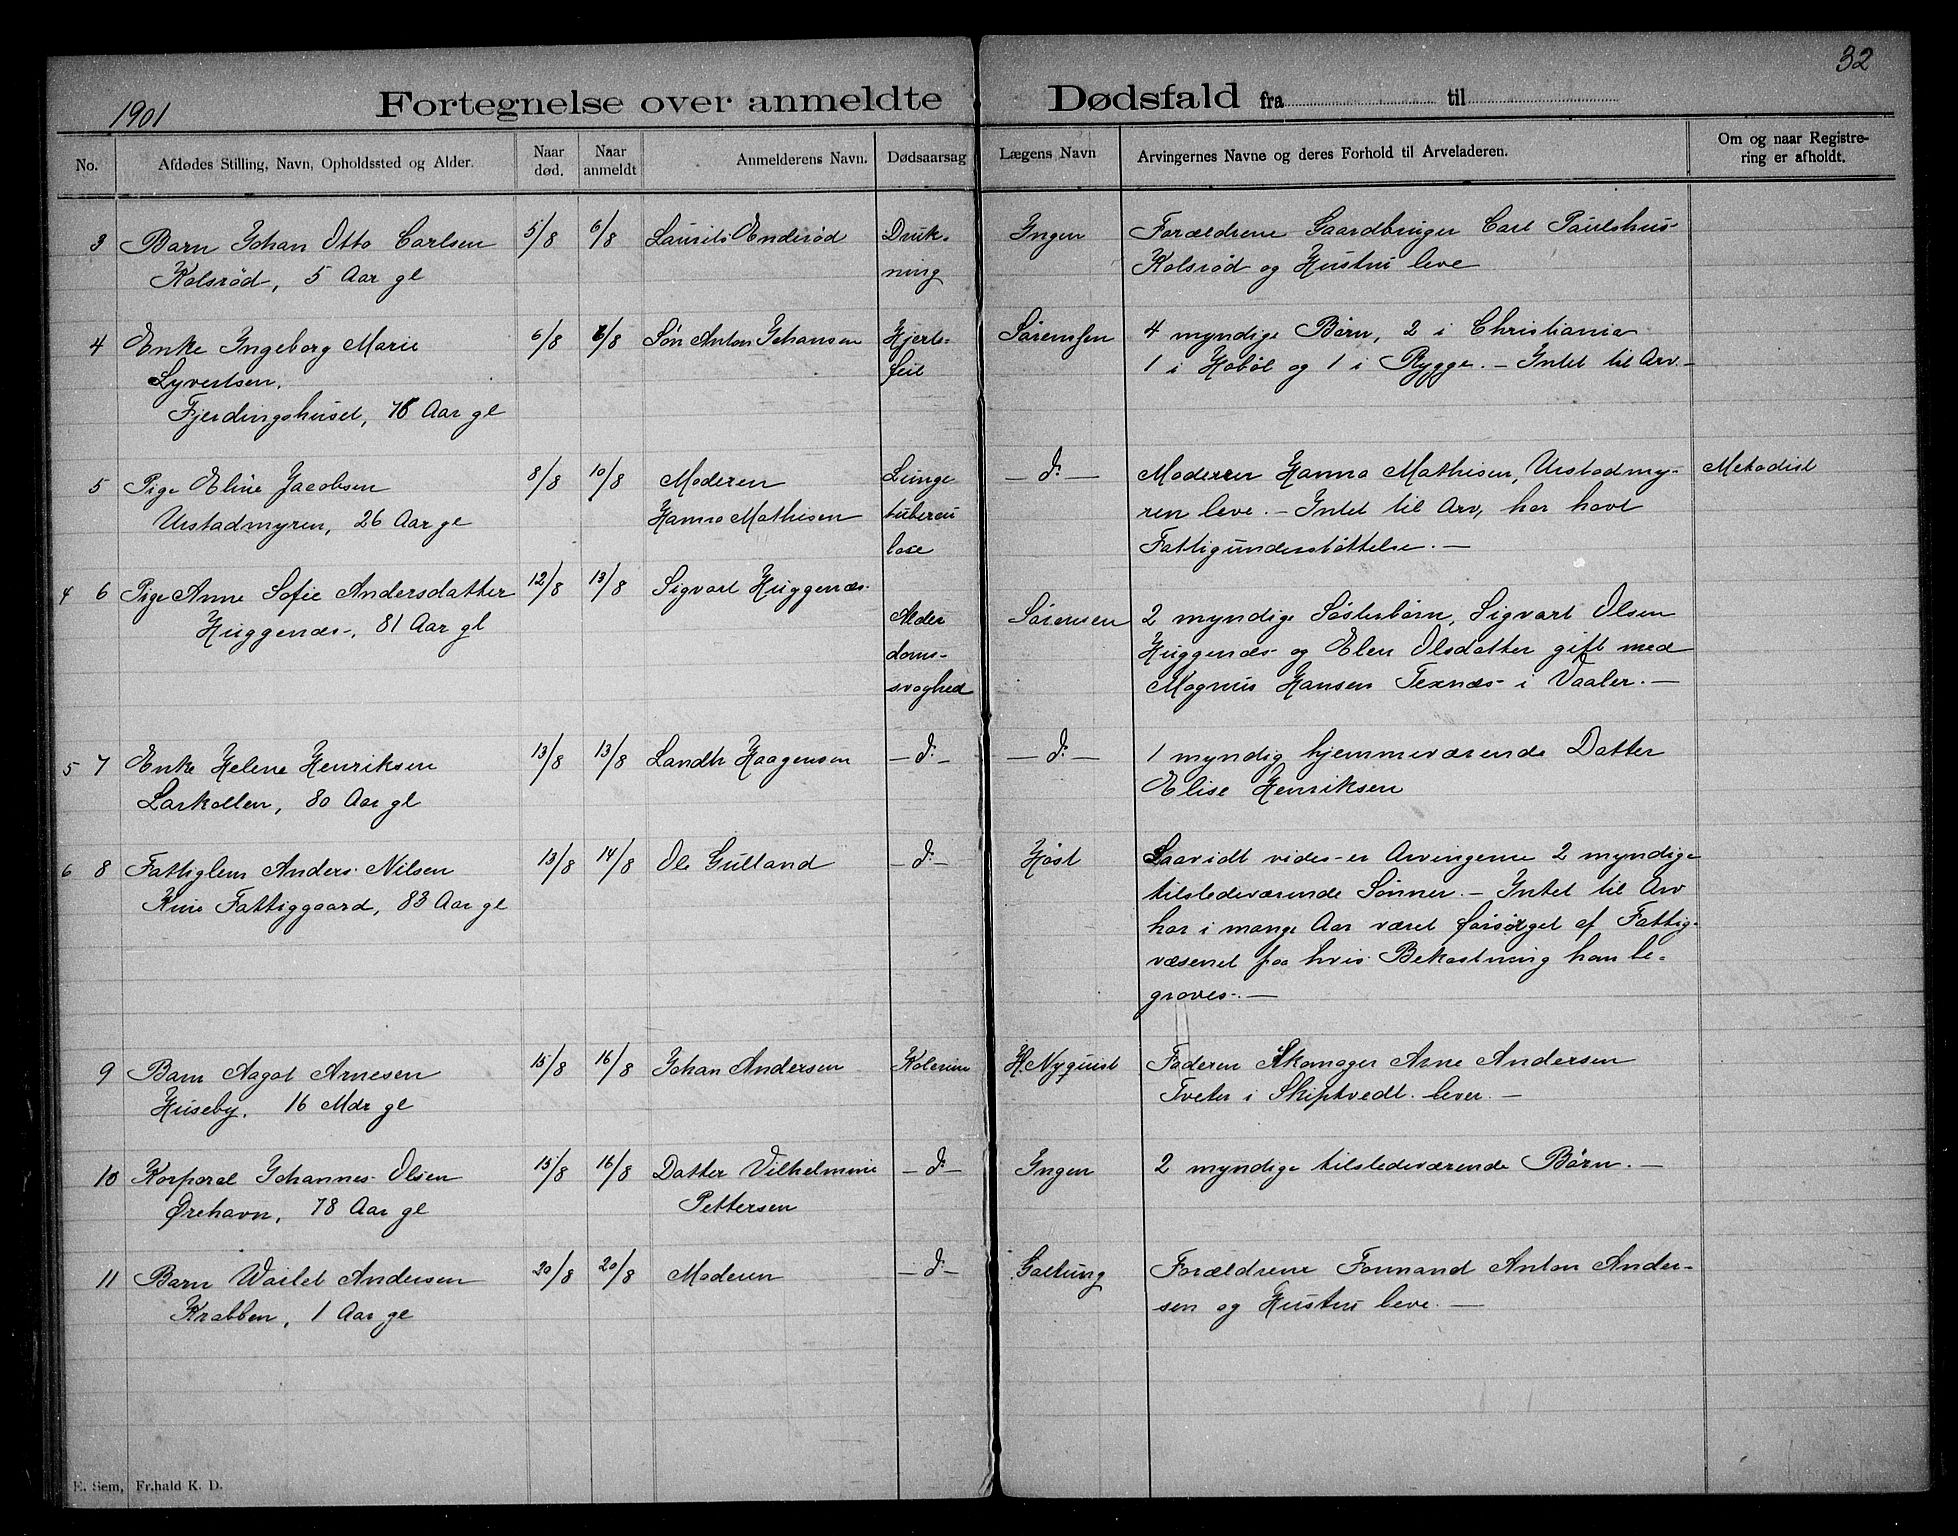 32
1901
Fortegnelse over anmeldte Dødsfald fra til
No.
Afdødes Stilling, Navn, Opholdssted og Alder.
Naar død.
Naar anmeldt
Anmelderens Navn.
Dødsaarsag
Lægens Navn
Arvingernes Navne og deres Forhold til Arveladeren.
Om og naar Registre-
ring er afholdt.
3 Barn Johan Otto Carlsen 5/8 6/8 Laurits Enderød Druk- Ingen Forældrene Gaardbruger Carl Paulshus
Kolsrød, 5 Aar gl ning Kolsrød og Hustru leve
4 Enke Ingeborg Marie 6/8 6/8 Søn Anton Johansen Hjerte- Sørenssen 4 myndige Børn, 2 i Christiania
Lyvertsen, feil 1 i Hobøl og 1 i Rygge. – Intet til Arv. –
Fjerdingshuset, 76 Aar gl
5 Pige Eline Jacobsen 8/8 10/8 Moderen Lunge – d. – Moderen Hanna Mathisen, Urstadmy- Metodist
Urstadmyren, 26 Aar gl Hanna Mathisen tubercu ren leve. – Intet til Arv, har havt
lose Fattigunderstøttelse. –
4 6 Pige Anne Sofie Andersdatter 12/8 13/8 Sigvart Huggenæs
Huggenæs, 81 Aar gl Alder Sørensen 2 myndige Søsterbørn, Sigvart Olsen
doms- Huggenæs og Elen Olsdatter gift med
svaghed Magnus Hansen Texnæs i Vaaler. –
5 7 Enke Helene Henriksen 13/8 13/8 Landh Haagensen – d. – – d. – 1 myndig hjemmeværende Datter
Larkollen, 80 Aar gl Elise Henriksen
6 8 Fattiglem Anders Nilsen 13/8 14/8 Ole Gulland – d. – Høst Saavidt vides er Arvingerne 2 myndige
Kure Fattiggaard, 83 Aar gl tilstedeværende Sønner. – Intet til Arv
har i mange Aar været forsørget af Fattig-
væsenet paa hvis Bekostning han be-
graves. –
9 Barn Aagot Arnesen 15/8 16/8 Johan Andersen Kolerine H. Nyquist Faderen Skomager Arne Andersen
Huseby, 16 Mdr gl Tveter i Skiptvedt lever. –
10 Korporal Johannes Olsen 15/8 16/8 Datter Vilhelmine – d. – Ingen 2 myndige tilstedeværende Børn. –
Ørehavn, 78 Aar gl Pettersen
11 Barn Vaslet Andersen 20/8 20/8 Moderen – d. – Galtung Forældrene Formand Anton Ander-
Krabben, 1 Aar gl sen og Hustru leve. –
E. Sem, Fr.hald K. D.